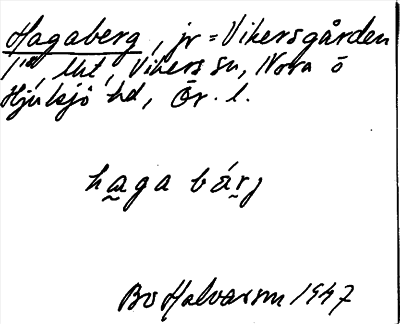 Hagaberg, jr = Vikersgården
1¹⁄₂, Vikers sn, Nora o
Hjulsjö hd, Ör. l.
haga bárj
Bo Halvarson 1947